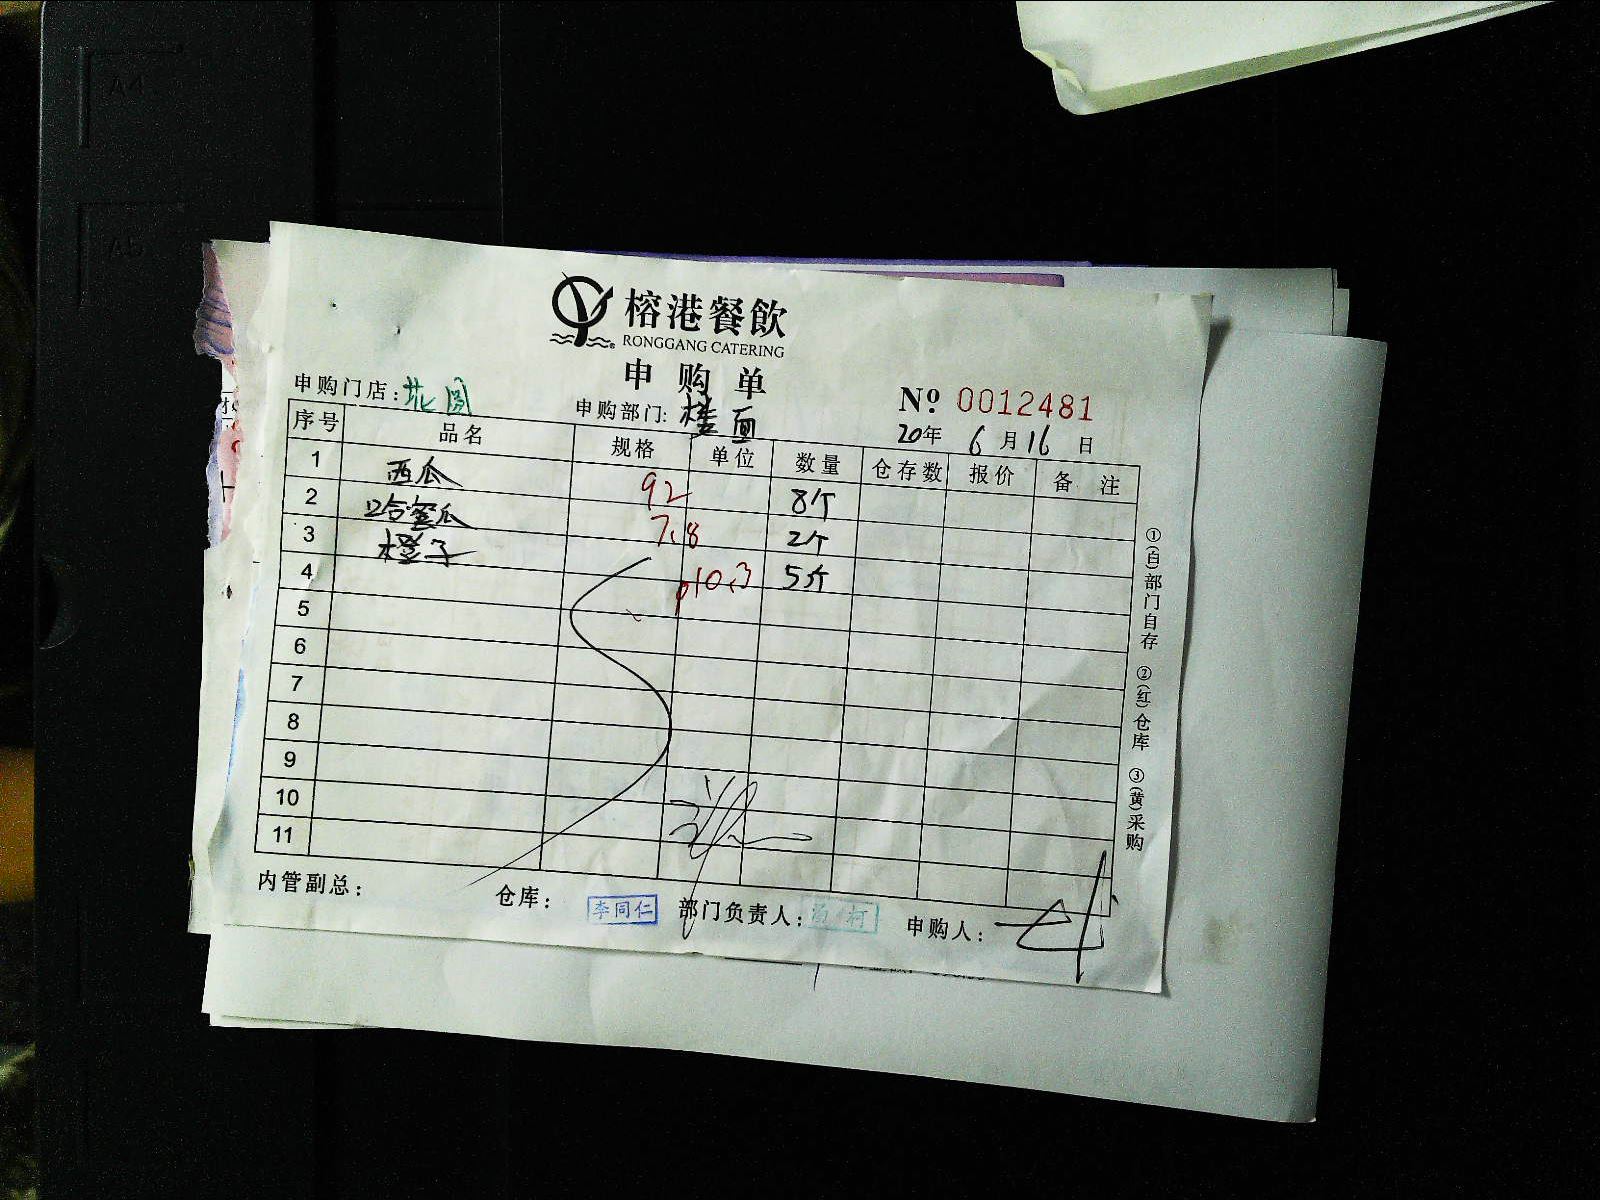 榕港餐飲
RONGGANG CATERING
申购单
申购门店:
申购部门: 楼面
№ 0012481
20年 6月16日
序号 品名 规格 单位 数量 仓存数 报价 备注
1 西瓜 92 8个
2 哈密瓜 7.8 2个
3 橙子 10.3 5个
4
5
6
7
8
9
10
11
①(白)部门自存 ②(红)仓库 ③(黄)采购
内管副总: 仓库: 李同仁 部门负责人: 申购人:
A4
A5